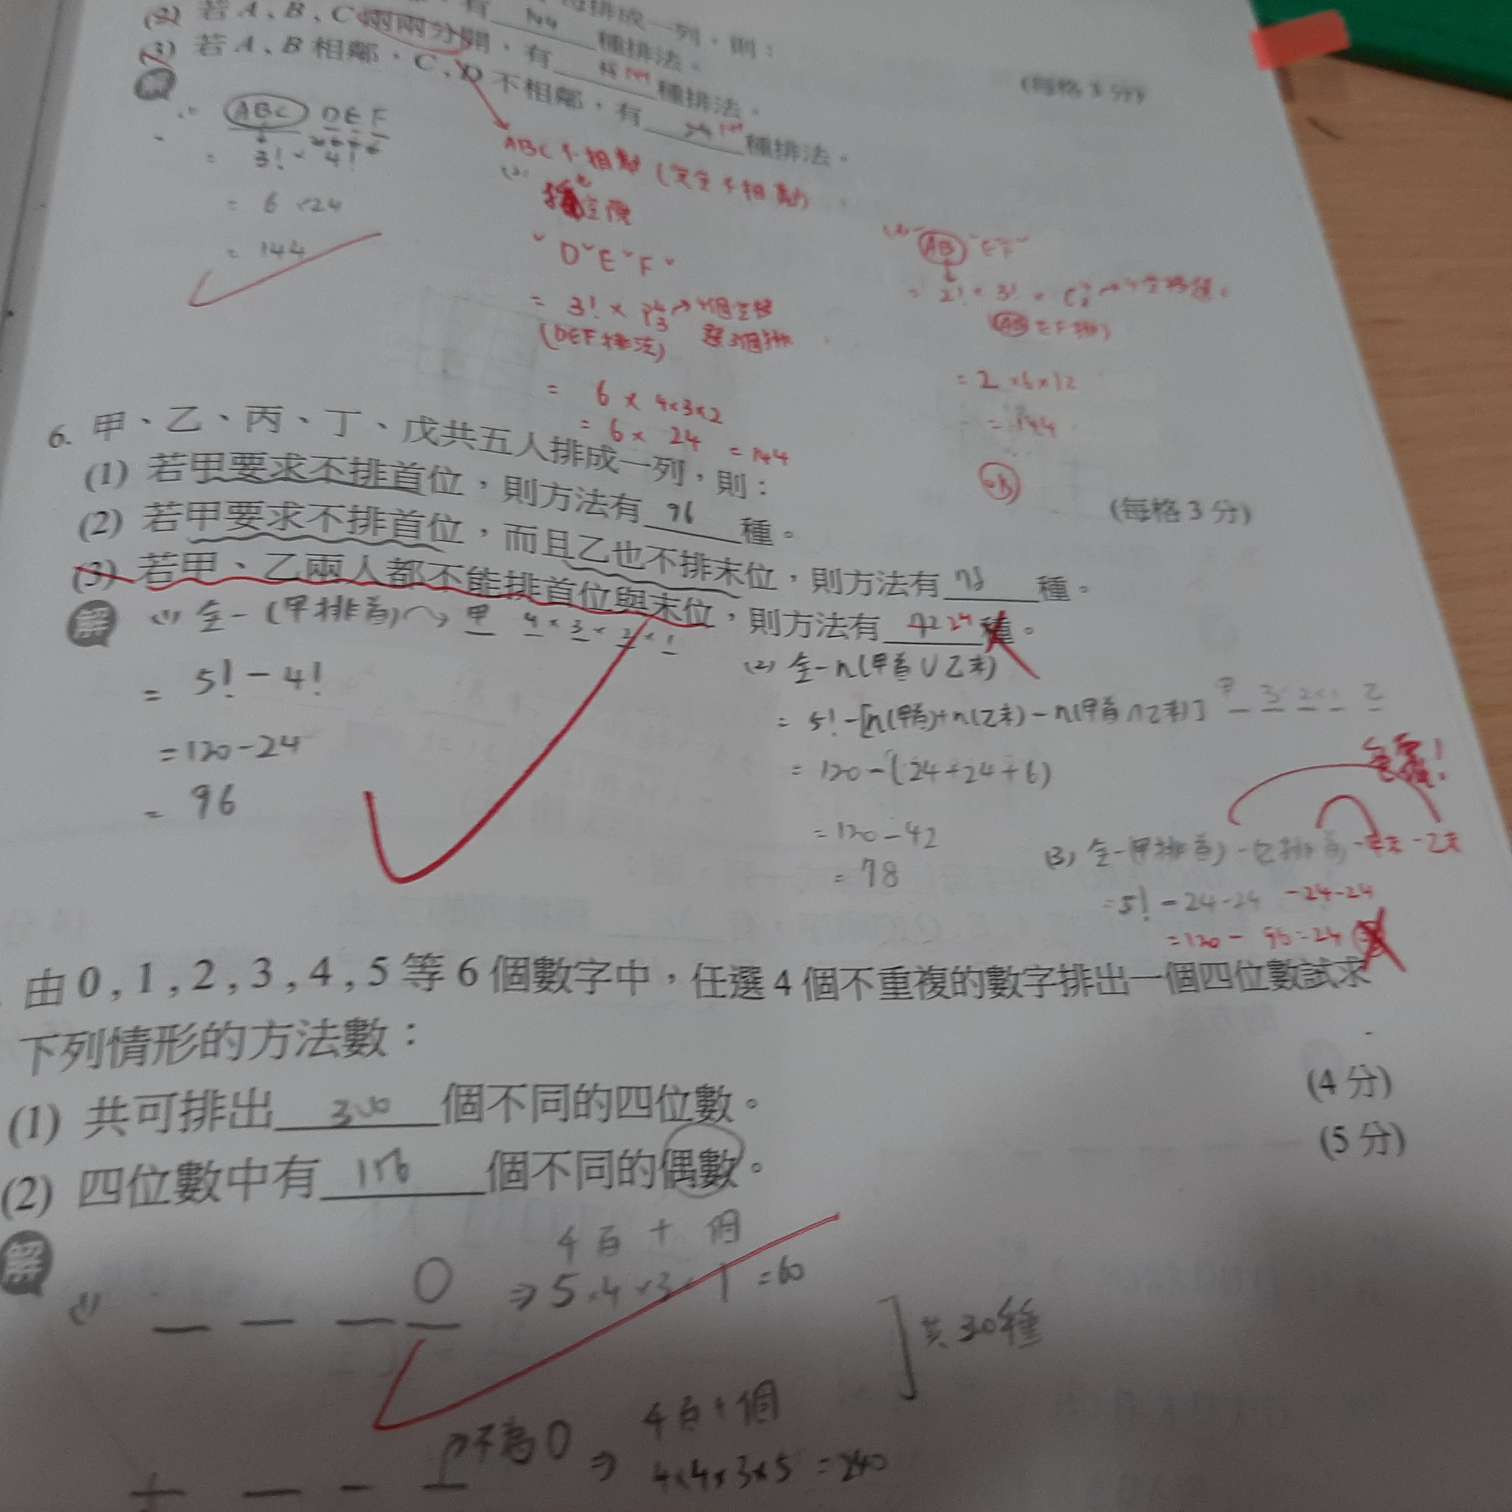 有 144 種排法。
(2) 若 A、B、C 兩兩分開,有 種排法。
(3) 若 A、B 相鄰,C、D 不相鄰,有 種排法。
(每格 3 分)
解
ABC DEF
= 3! × 4!
= 6 × 24
= 144
ABC 不相鄰 (完全不相鄰)
(2)
插空隙
ˇ D ˇ E ˇ F ˇ
= 3! × P⁴₃ → 4個空格
(DEF排法) 選3個排
= 6 × 4×3×2
= 6 × 24 = 144
AB ˇ EF ˇ
= 2! × 3! ×
(AB EF排)
= 2 × 6 × 12
= 144
6. 甲、乙、丙、丁、戊共五人排成一列,則:
(1) 若甲要求不排首位,則方法有 96 種。
(每格 3 分)
(2) 若甲要求不排首位,而且乙也不排末位,則方法有 78 種。
(3) 若甲、乙兩人都不能排首位與末位,則方法有 72 24 種。
解
(1) 全-(甲排首) → 甲 4 × 3 × 2 × 1
= 5! - 4!
= 120 - 24
= 96
(2) 全-n(甲首∪乙末)
= 5! - [n(甲首)+n(乙末)-n(甲首∩乙末)] 甲 3 × 2 × 1 乙
= 120 - (24+24+6)
= 120 - 42
= 78
(3) 全-(甲排首)-(乙排首)-甲末-乙末
= 5! - 24 - 24 -24-24
= 120 - 96 = 24
由 0 , 1 , 2 , 3 , 4 , 5 等 6 個數字中,任選 4 個不重複的數字排出一個四位數試求
下列情形的方法數:
(1) 共可排出 300 個不同的四位數。
(4 分)
(2) 四位數中有 156 個不同的偶數。
(5 分)
解
千百十個
(1) 0 ⇒ 5×4×3×1 = 60
共300種
千百十個
不為0 ⇒ 4×4×3×5 = 240